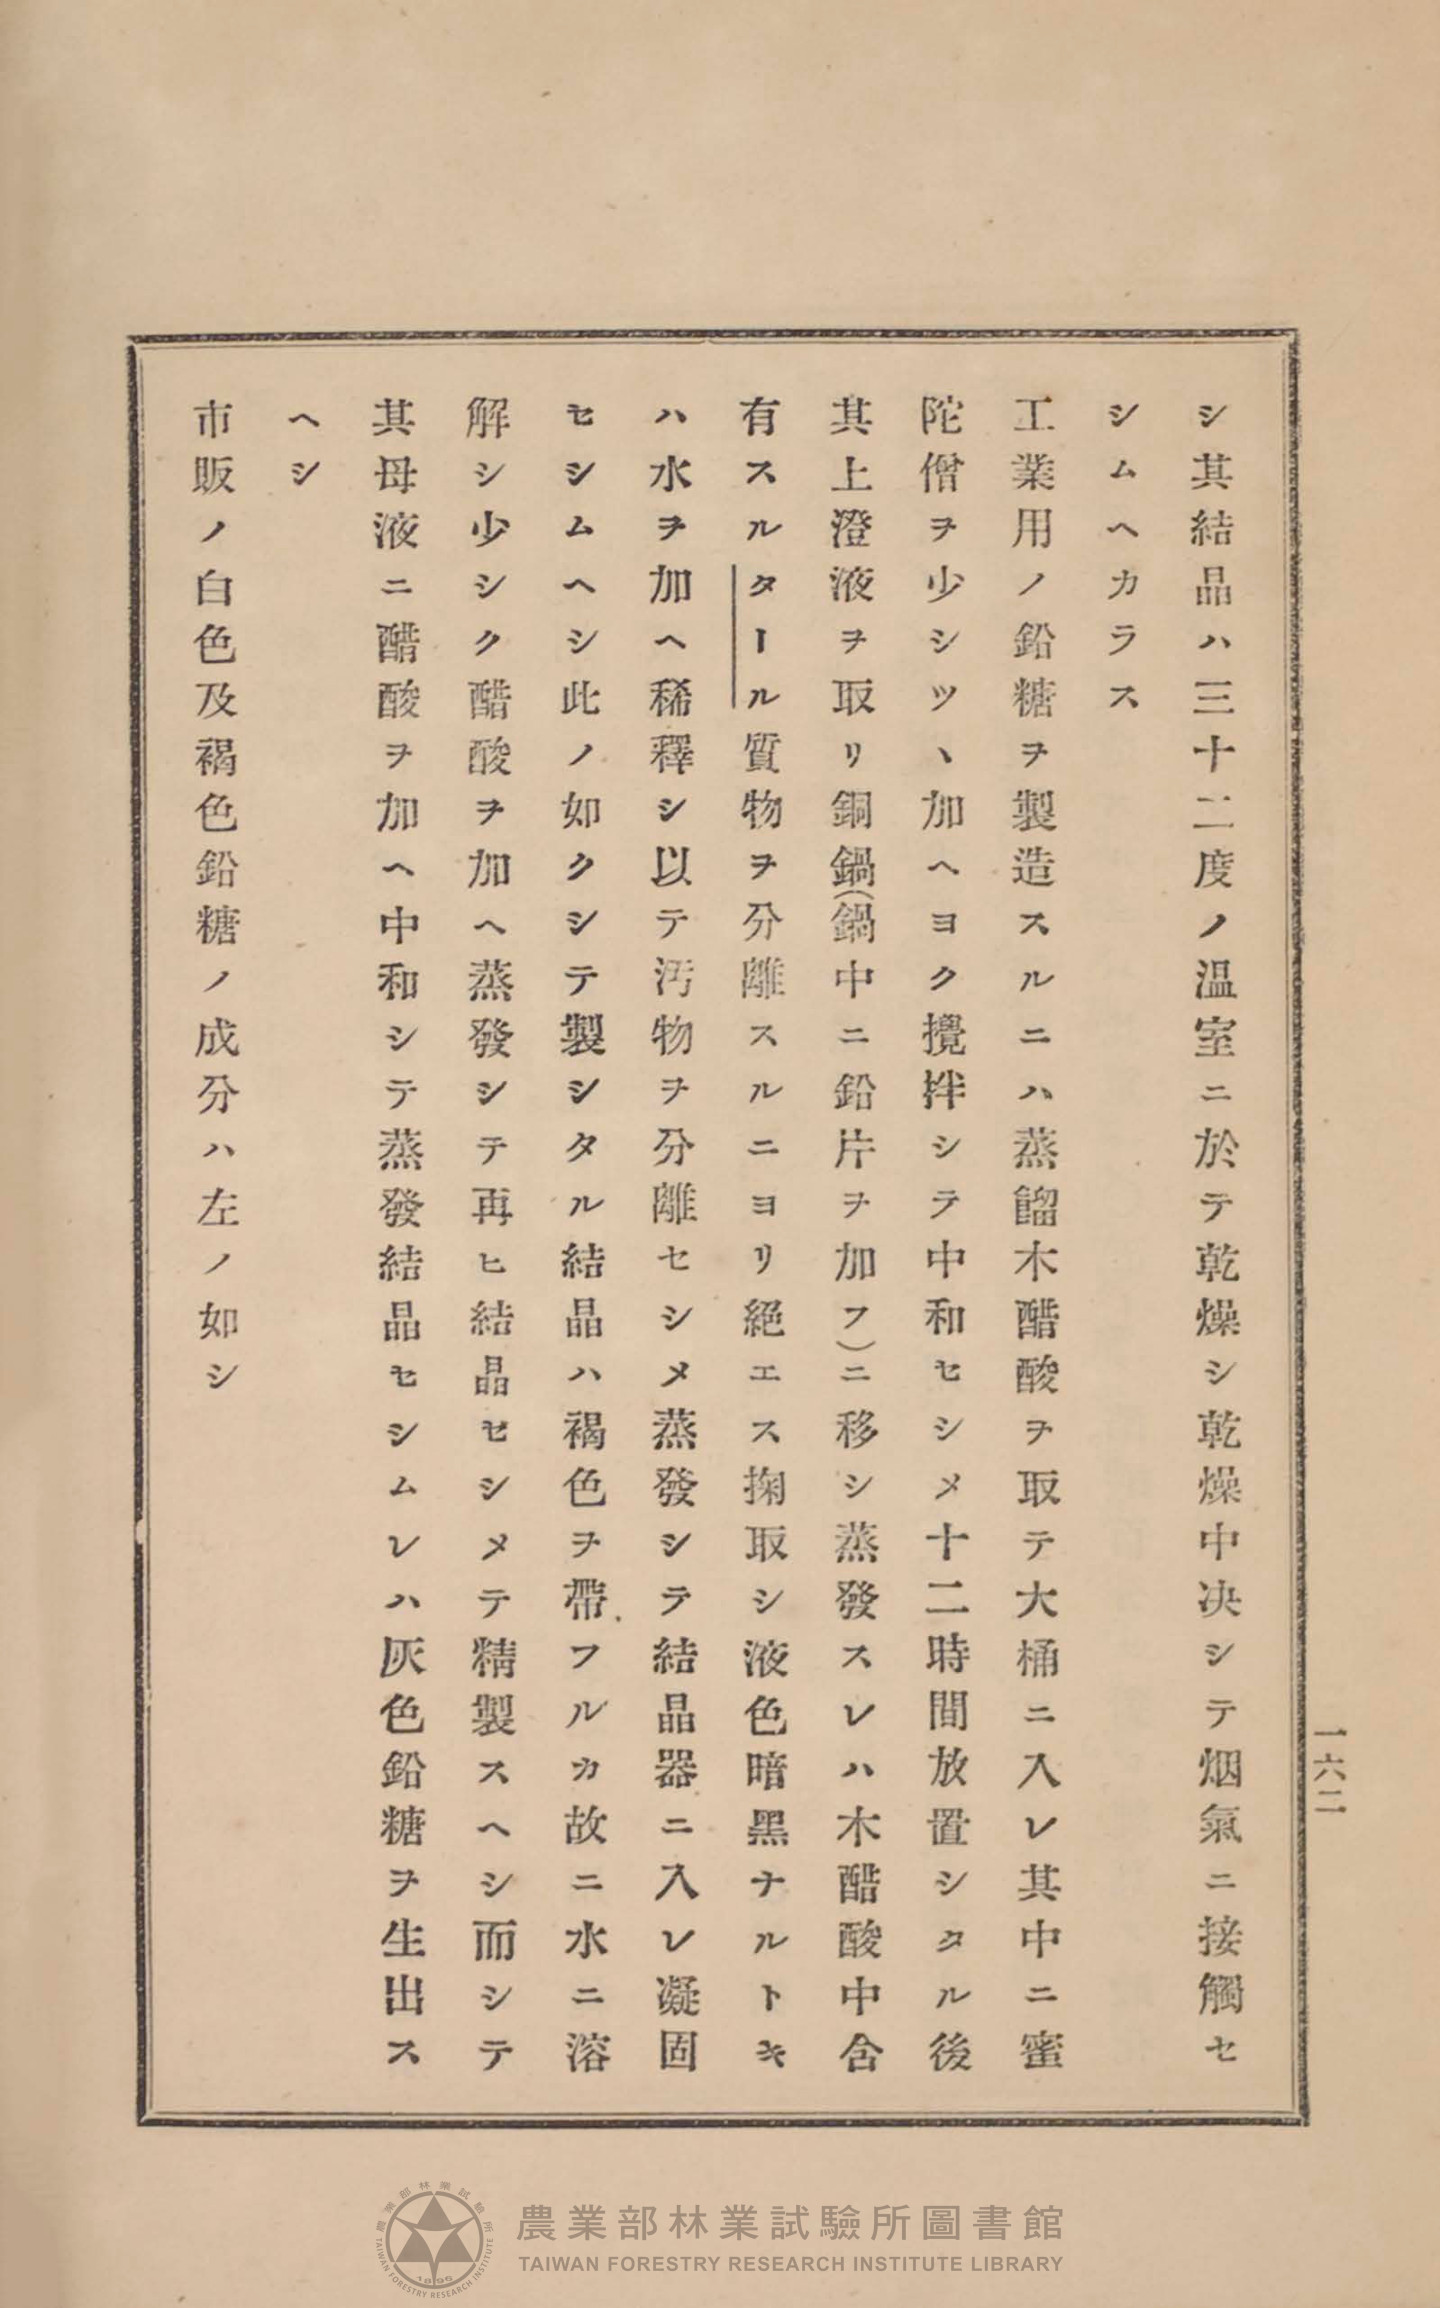 シ其結晶ハ三十二度ノ温室ニ於テ乾燥シ乾燥中决シテ烟氣ニ接觸セ
シムヘカラス
工業用ノ鉛糖ヲ製造スルニハ蒸餾木醋酸ヲ取テ大桶ニ入レ其中ニ蜜
陀僧ヲ少シツヽ加ヘヨク攪拌シテ中和セシメ十二時間放置シタル後
其上澄液ヲ取リ銅鍋(鍋中ニ鉛片ヲ加フ)ニ移シ蒸發スレハ木醋酸中含
有スルタール質物ヲ分離スルニヨリ絕エス掬取シ液色暗黑ナルトキ
ハ水ヲ加ヘ稀釋シ以テ汚物ヲ分離セシメ蒸發シテ結晶器ニ入レ凝固
セシムヘシ此ノ如クシテ製シタル結晶ハ褐色ヲ帶フルカ故ニ水ニ溶
解シ少シク醋酸ヲ加ヘ蒸發シテ再ヒ結晶セシメテ精製スヘシ而シテ
其母液ニ醋酸ヲ加ヘ中和シテ蒸發結晶セシムレハ灰色鉛糖ヲ生出ス
ヘシ
市販ノ白色及褐色鉛糖ノ成分ハ左ノ如シ
一六二
農業部林業試驗所圖書館
TAIWAN FORESTRY RESEARCH INSTITUTE LIBRARY
農業部林業試驗所
TAIWAN FORESTRY RESEARCH INSTITUTE
1896